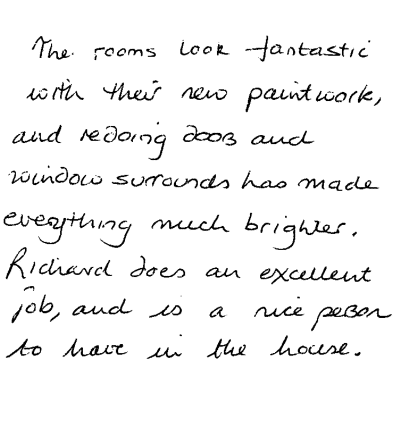 The rooms look fantastic
with their new paintwork,
and redoing doors and
window surrounds has made
everything much brighter.
Richard does an excellent
job, and is a nice person
to have in the house.